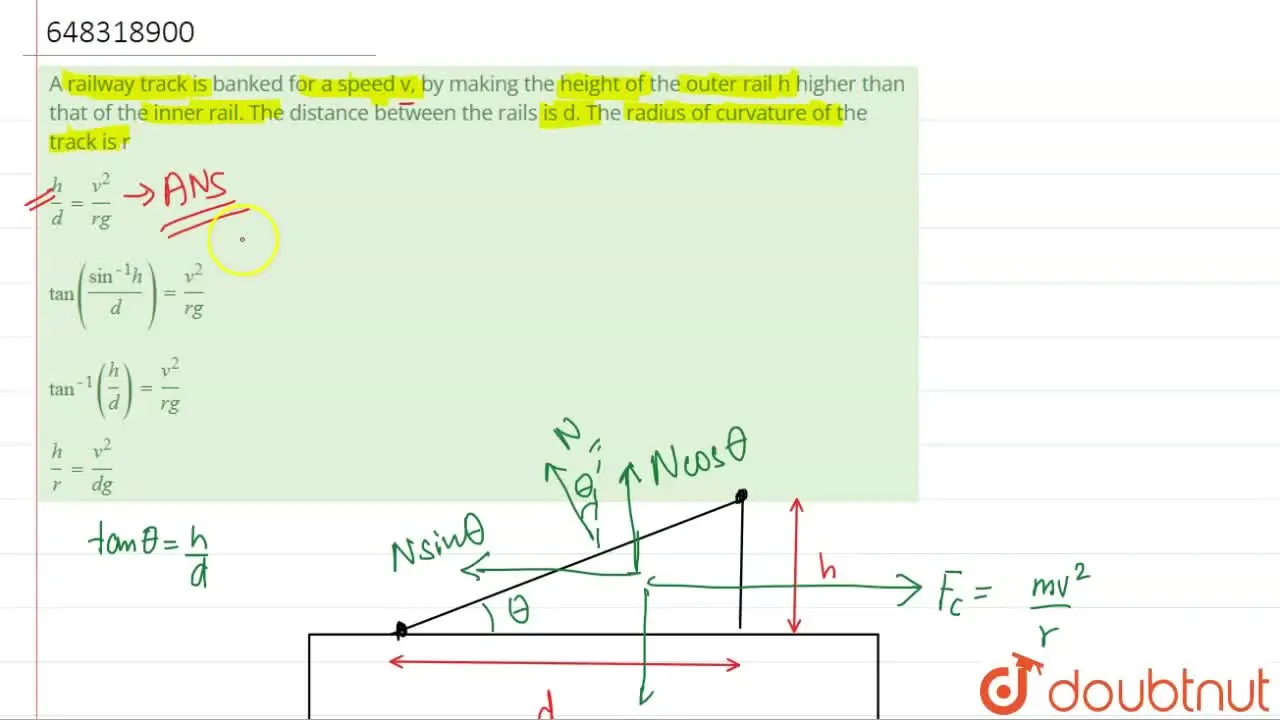 648318900
A railway track is banked for a speed v, by making the height of the outer rail h higher than
that of the inner rail. The distance between the rails is d. The radius of curvature of the
track is r
h/d = v²/rg → ANS
tan(sin⁻¹h/d) = v²/rg
tan⁻¹(h/d) = v²/rg
h/r = v²/dg
N
θ
N cosθ
tanθ = h/d
N sinθ
θ
h
Fc = mv²/r
d
doubtnut